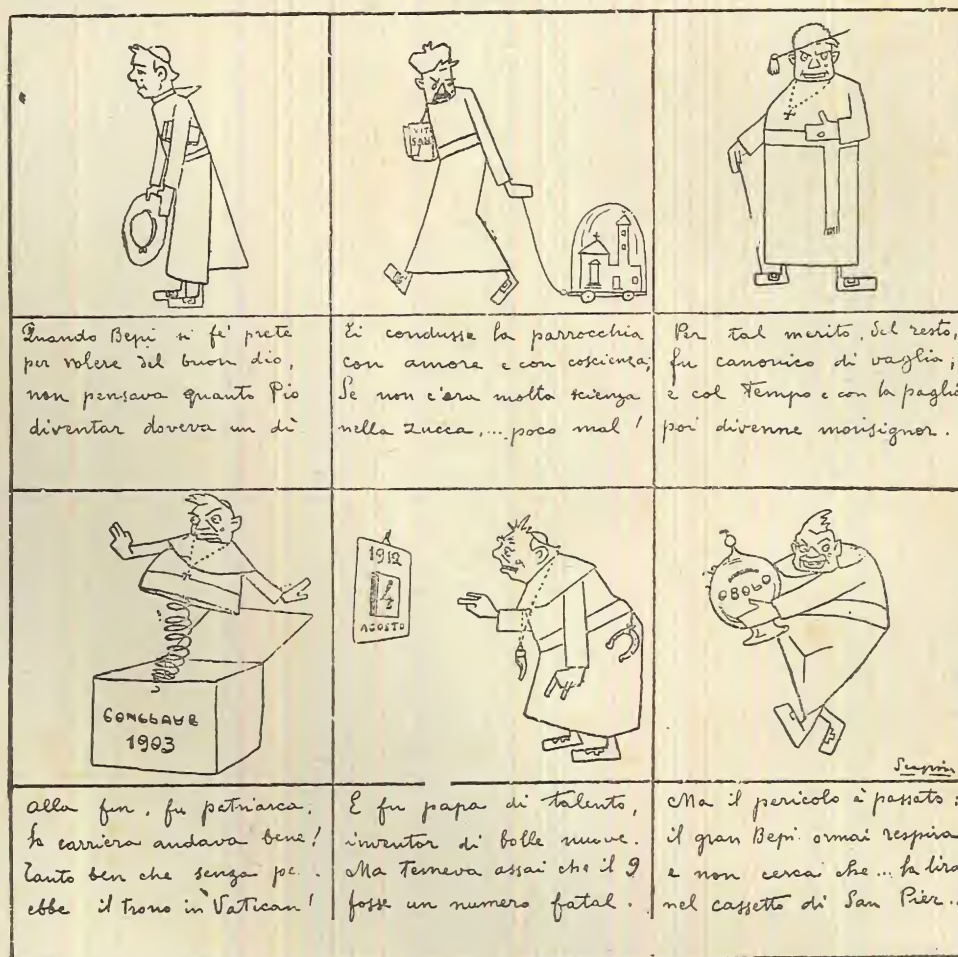 VITA
Quando Bepi si fe' prete
per volere del buon dio,
non pensava quanto Pio
diventar doveva un dì
Ei condusse la parrocchia
con amore e con coscienza;
Se non c'era molta scienza
nella zucca,... poco mal!
Per tal merito, del resto,
fu canonico di vaglia;
e col Tempo e con la paglia
poi divenne monsignor.
CONCLAVE
1903
1912
4
AGOSTO
OBOLO
Alla fin, fu patriarca,
la carriera andava bene!
Tanto ben che senza pe
ebbe il trono in Vatican!
E fu papa di talento,
inventor di bolle nuove.
Ma temeva assai che il 9
fosse un numero fatal.
Ma il pericolo è passato:
il gran Bepi ormai respira
e non cerca che... la lira
nel cassetto di San Pier...